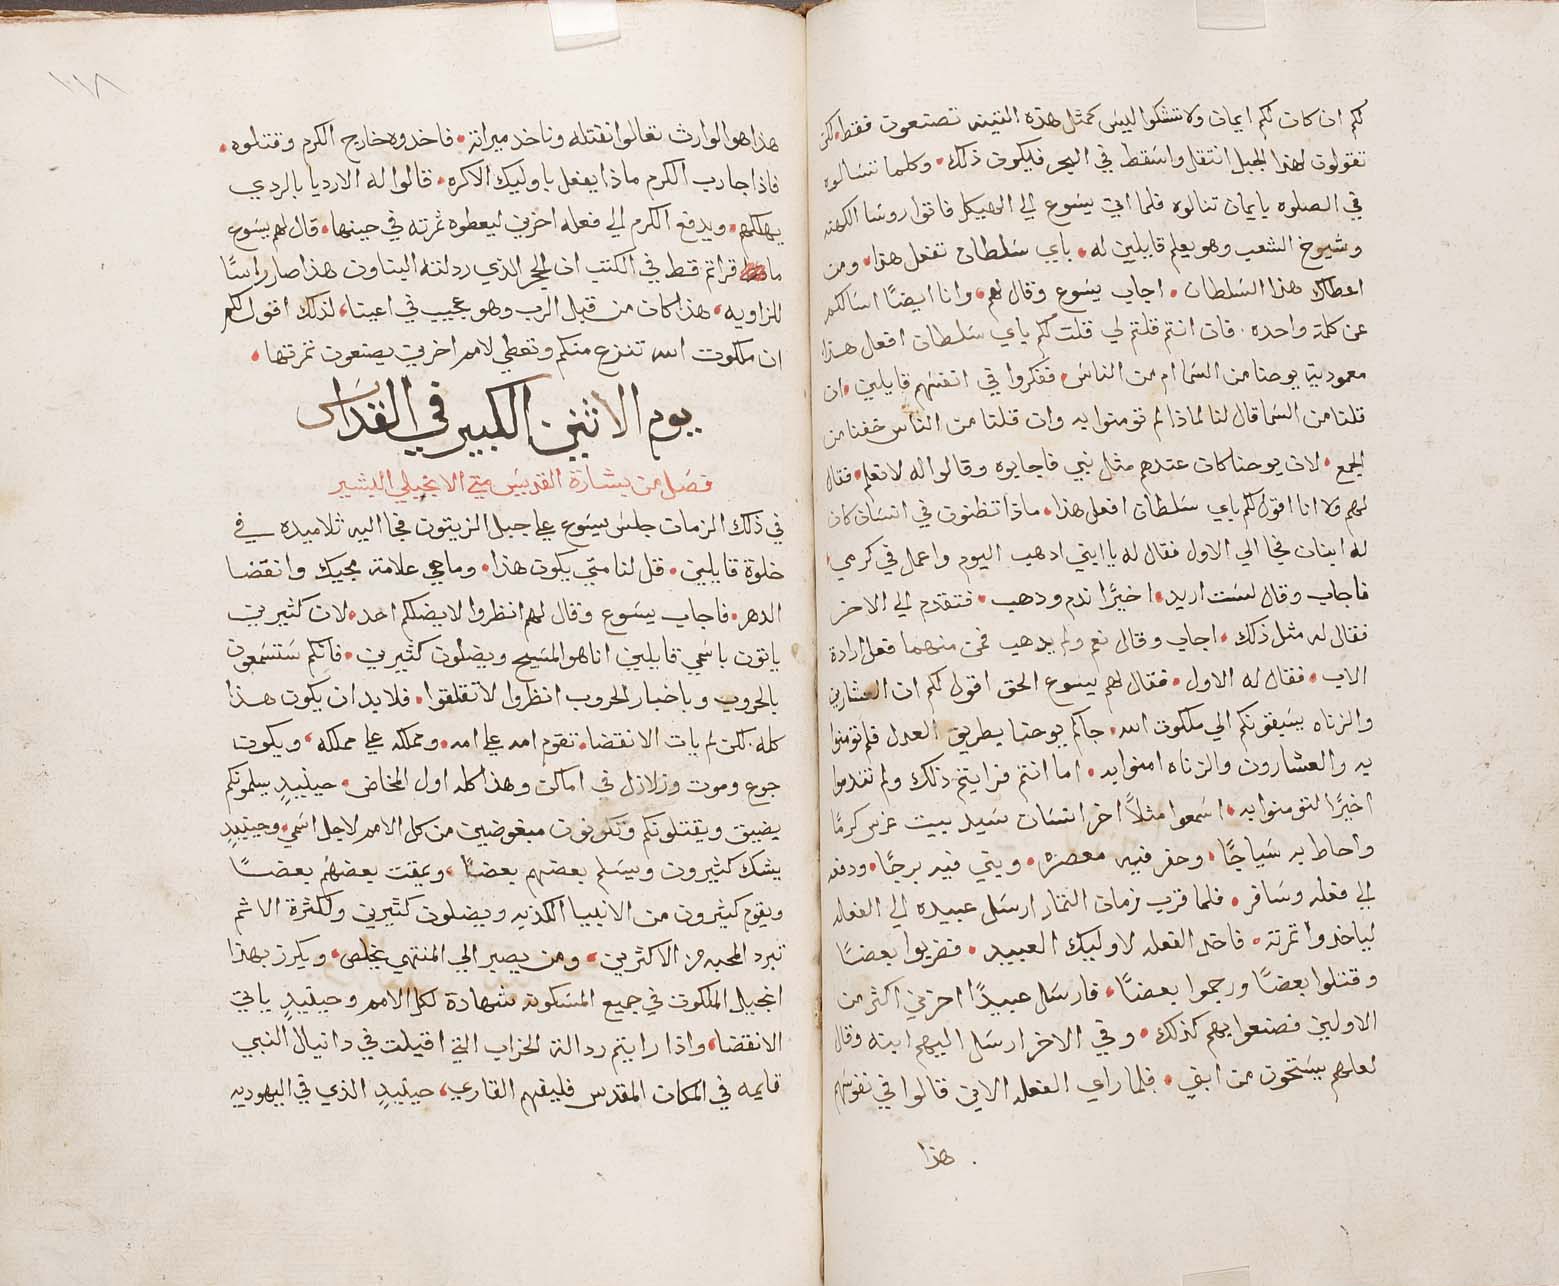 لكم ان كان لكم ايمان ولا تشكوا ليس كمثل هذه التينه تصنعون فقط. لكن
تقولون لهذا الجبل انتقل واسقط في البحر فيكون ذلك. وكلما تسالوه
في الصلوه بايمان تنالوه فلما اتى يسوع الي الهيكل فاتوا روسا الكهنه
وشيوخ الشعب وهو يعلم قايلين له. باي سلطان تفعل هذا. ومن
اعطاك هذا السلطان. اجاب يسوع وقال لهم. وانا ايضًا اسالكم
عن كلمة واحده. فان انتم قلتم لي قلت لكم باي سلطان افعل هذا
معمودية يوحنا من السما ام من الناس. ففكروا في انفسهم قايلين. ان
قلنا من السما قال لنا لماذا لم تومنوا به وان قلنا من الناس خفنا من
الجمع. لان يوحنا كان عندهم مثل نبي فاجابوه وقالوا له لا نعلم. فقال
لهم ولا انا اقول لكم باي سلطان افعل هذا. ماذا تظنون في انسان كان
له ابنان فجا الي الاول فقال له يا ابني ادهب اليوم واعمل في كرمي.
فاجاب وقال لست اريد. اخيرًا ندم ودهب. فتقدم الي الاخر
فقال له مثل ذلك. اجاب وقال نعم ولم يدهب فمن منهما فعل ارادة
الاب. فقال له الاول. فقال لهم يسوع الحق اقول لكم ان العشارين
والزناه يسبقونكم الي ملكوت الله. جاكم يوحنا بطريق العدل فلم تومنوا
به والعشارون والزناه امنوا به. اما انتم فرايتم ذلك ولم تندموا
اخيرًا لتومنوا به. اسمعوا مثلاً اخر انسان سيد بيت غرس كرمًا
واحاط به سياجًا. وحفر فيه معصره. وبني فيه برجًا. ودفعه
الي فعله وسافر. فلما قرب زمان الثمار ارسل عبيده الي الفعله
لياخدوا ثمرته. فاخد الفعله لاوليك العبيد. فضربوا بعضًا
وقتلوا بعضًا ورجموا بعضًا. فارسل عبيدًا اخرين اكثر من
الاولين فصنعوا بهم كذلك. وفي الاخر ارسل اليهم ابنه وقال
لعلهم يستحون من ابني. فلما راي الفعله الابن قالوا في نفوسهم
هذا
١١٨
هذا هو الوارث تعالوا نقتله وناخد ميراثه. فاخدوه خارج الكرم وقتلوه.
فاذا جا رب الكرم ماذا يفعل باوليك الاكره. قالوا له الارديا بالردي
يهلكهم. ويدفع الكرم الي فعله اخرين ليعطوه ثمرته في حينها. قال لهم يسوع
ما قراتم قط في الكتب ان الحجر الذي ردلته البناون هذا صار راسًا
للزاويه. هذا كان من قبل الرب وهو عجيب في اعيننا. لذلك اقول لكم
ان ملكوت الله تنزع منكم وتعطي لامم اخرين يصنعون ثمرتها.
يوم الاثنين الكبير في القداس
فصل من بشارة القديس متي الانجيلي البشير
في ذلك الزمان جلس يسوع علي جبل الزيتون فجا اليه تلاميده في
خلوة قايلين. قل لنا متي يكون هذا. وما هي علامة مجيك وانقضا
الدهر. فاجاب يسوع وقال لهم انظروا لا يضلكم احد. لان كثيرين
ياتون باسمي قايلين انا هو المسيح ويضلون كثيرين. فانكم ستسمعون
بالحروب وباخبار الحروب انظروا لا تقلقوا. فلابد ان يكون هذا
كله. لكن لم يات الانقضا. تقوم امه علي امه. ومملكه علي مملكه. ويكون
جوع وموت وزلازل في اماكن وهذا كله اول المخاض. حينيدٍ يسلمونكم
يضيق ويقتلونكم وتكونون مبغوضين من كل الامم لاجل اسمي. وحينيدٍ
يشك كثيرون ويسلم بعضهم بعضًا. ويمقت بعضهم بعضًا
ويقوم كثيرون من الانبيا الكذبه ويضلون كثيرين ولكثرة الاثم
تبرد المحبه من الاكثرين. ومن يصبر الي المنتهي يخلص. ويكرز بهذا
انجيل الملكوت في جميع المسكونه شهادة لكل الامم وحينيدٍ ياتي
الانقضا. واذا رايتم ردالة الخراب التي اقيلت في دانيال النبي
قايمه في المكان المقدس فليفهم القاري. حينيدٍ الذي في اليهوديه